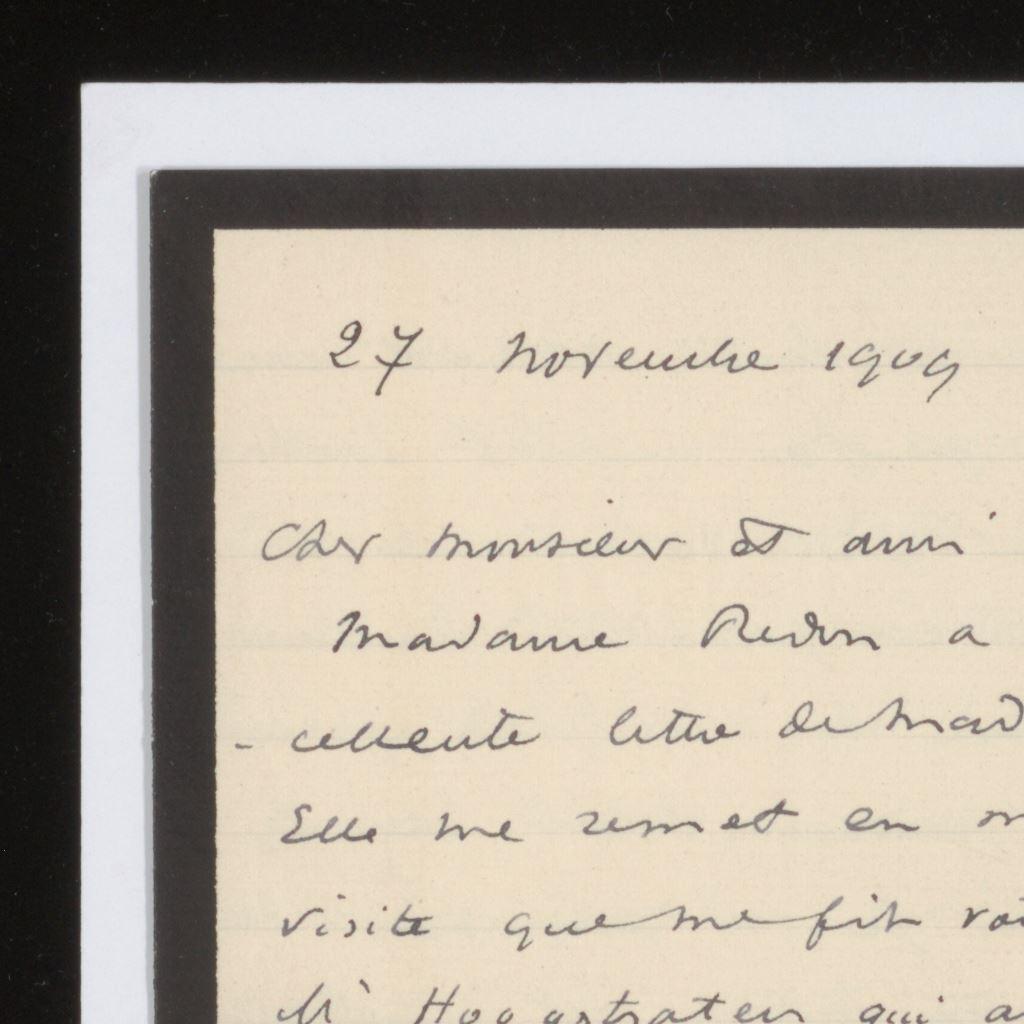 27 novembre 1909
Cher monsieur et ami
Madame Redon a
- cellente lettre de Mad
Elle me remet en m
visite que me fit
Mr Hoogstraten qui a